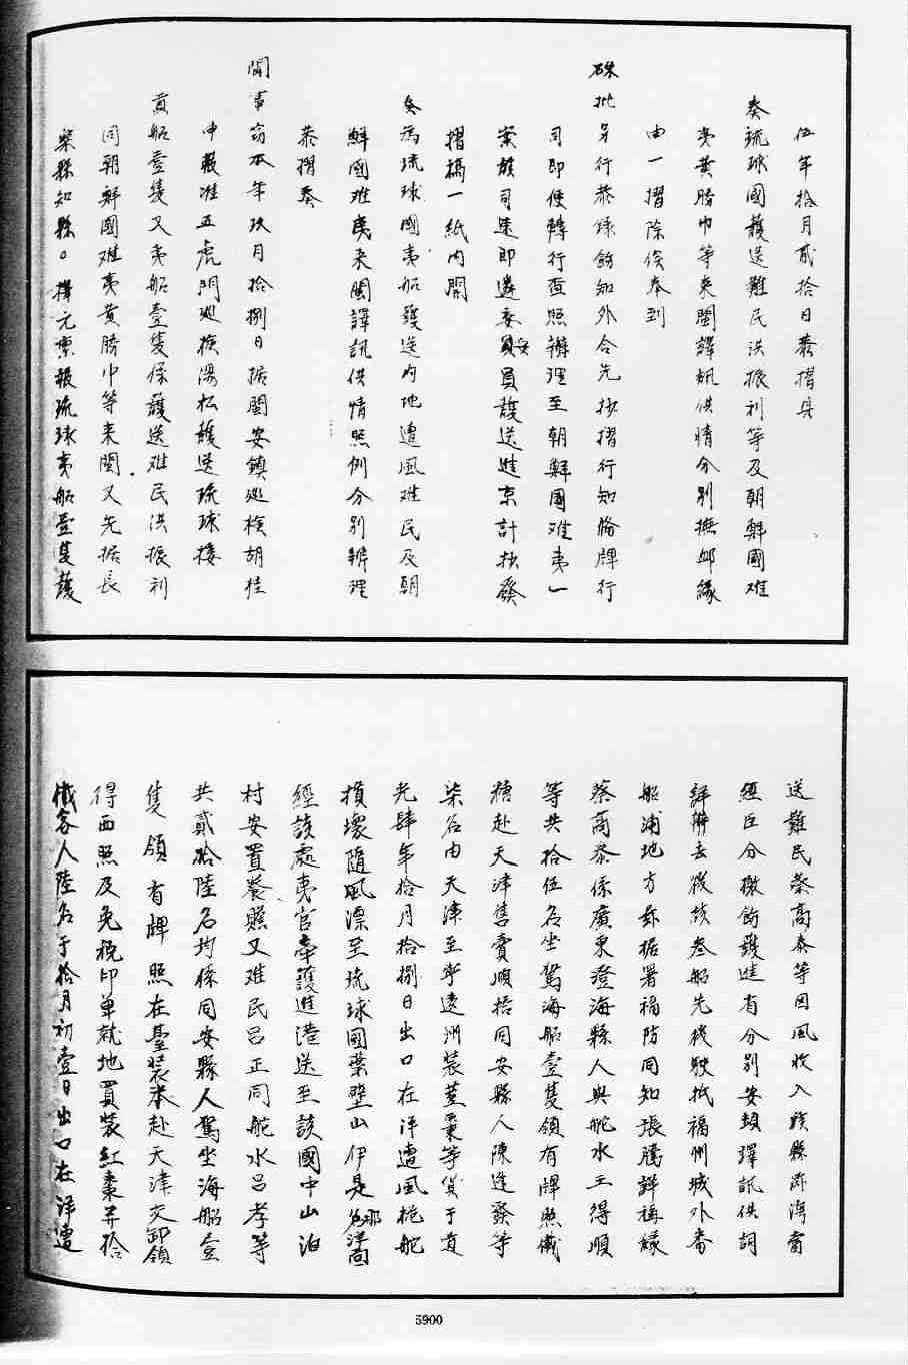 伍年拾月貳拾日恭摺具
奏琉球國護送難民洪振利等及朝鮮國难
夷黄勝巾等來閩譯訊供情分別撫卹緣
由一摺除俟奉到
硃批另行恭錄飭知外合先抄摺行知俻牌行
司即便轉行查照辦理至朝鮮國难夷一
案族司速即遴委妥員護送進京計抄發
摺稿一紙内開
奏為琉球國夷船護送内地遭風难民及朝
鮮國难夷来閩譯訊供情照例分别辦理
恭摺奏
聞事窃本年玖月拾捌日据閩安鎮廵檢胡桂
申報准五虎門廵檢湯松護送琉球接
貢船壹隻又夷船壹隻保護送难民洪振利
同朝鮮國难夷黄勝巾等来閩又先据長
樂縣知縣王擇元禀報琉球夷船壹隻護
送難民蔡高泰等因風收入該縣
經臣分檄飭護進省分别安頓譯訊供詞
詳辦去後該叁船先後駛抵福州城外番
船浦地方茲据署福防同知張騰詳稱緣
蔡高泰係廣東澄海縣人與舵水王得順
等共拾伍名坐駕海船壹隻領有牌照儎
糖赴天津售賣順搭同安縣人陳進發等
柒名由天津至寧遠州装荳粟等貨于道
光肆年拾月拾捌日出口在洋遭風桅舵
損壞隨風漂至琉球國葉壁山伊是那洋面
經該處夷官牽護進港送至該國中山泊
村安置餋贍又难民吕正同舵水吕孝等
共貳拾陸名均係同安縣人駕坐海船壹
隻領有牌照在臺装米赴天津交卸領
得回照及免税印单就地買装紅棗并搭
儎客人陸名于拾月初壹日出口在洋遭
5900